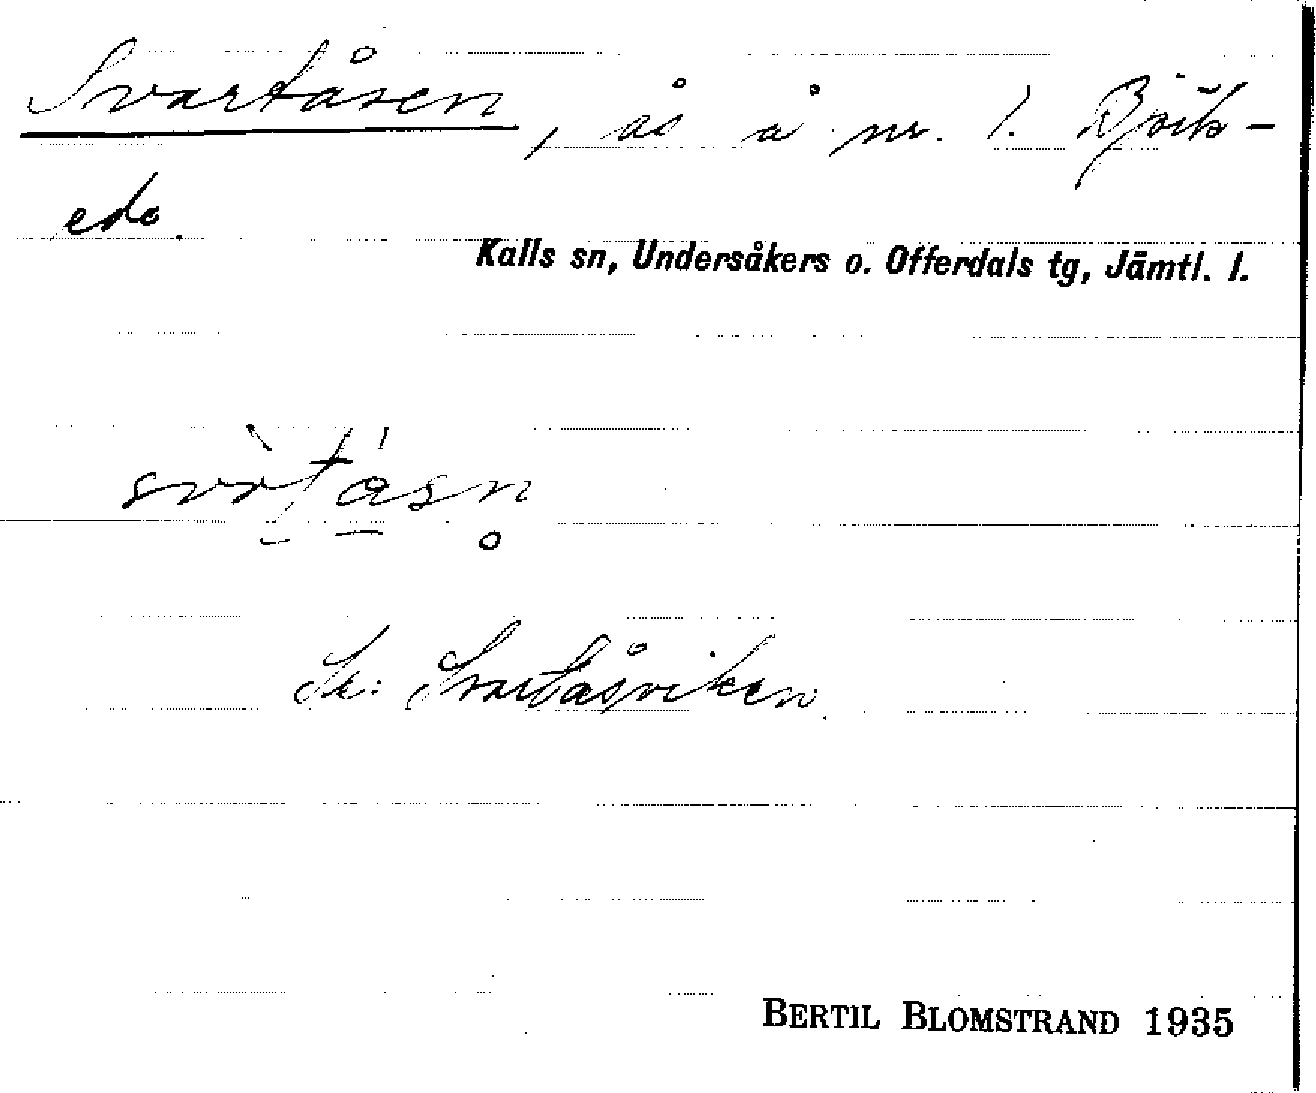 Svartåsen, ås å nr. 1. Björk-
ede.
Kalls sn, Undersåkers o. Offerdals tg, Jämtl. l.
Sr: Svartåsviken
BERTIL BLOMSTRAND 1935